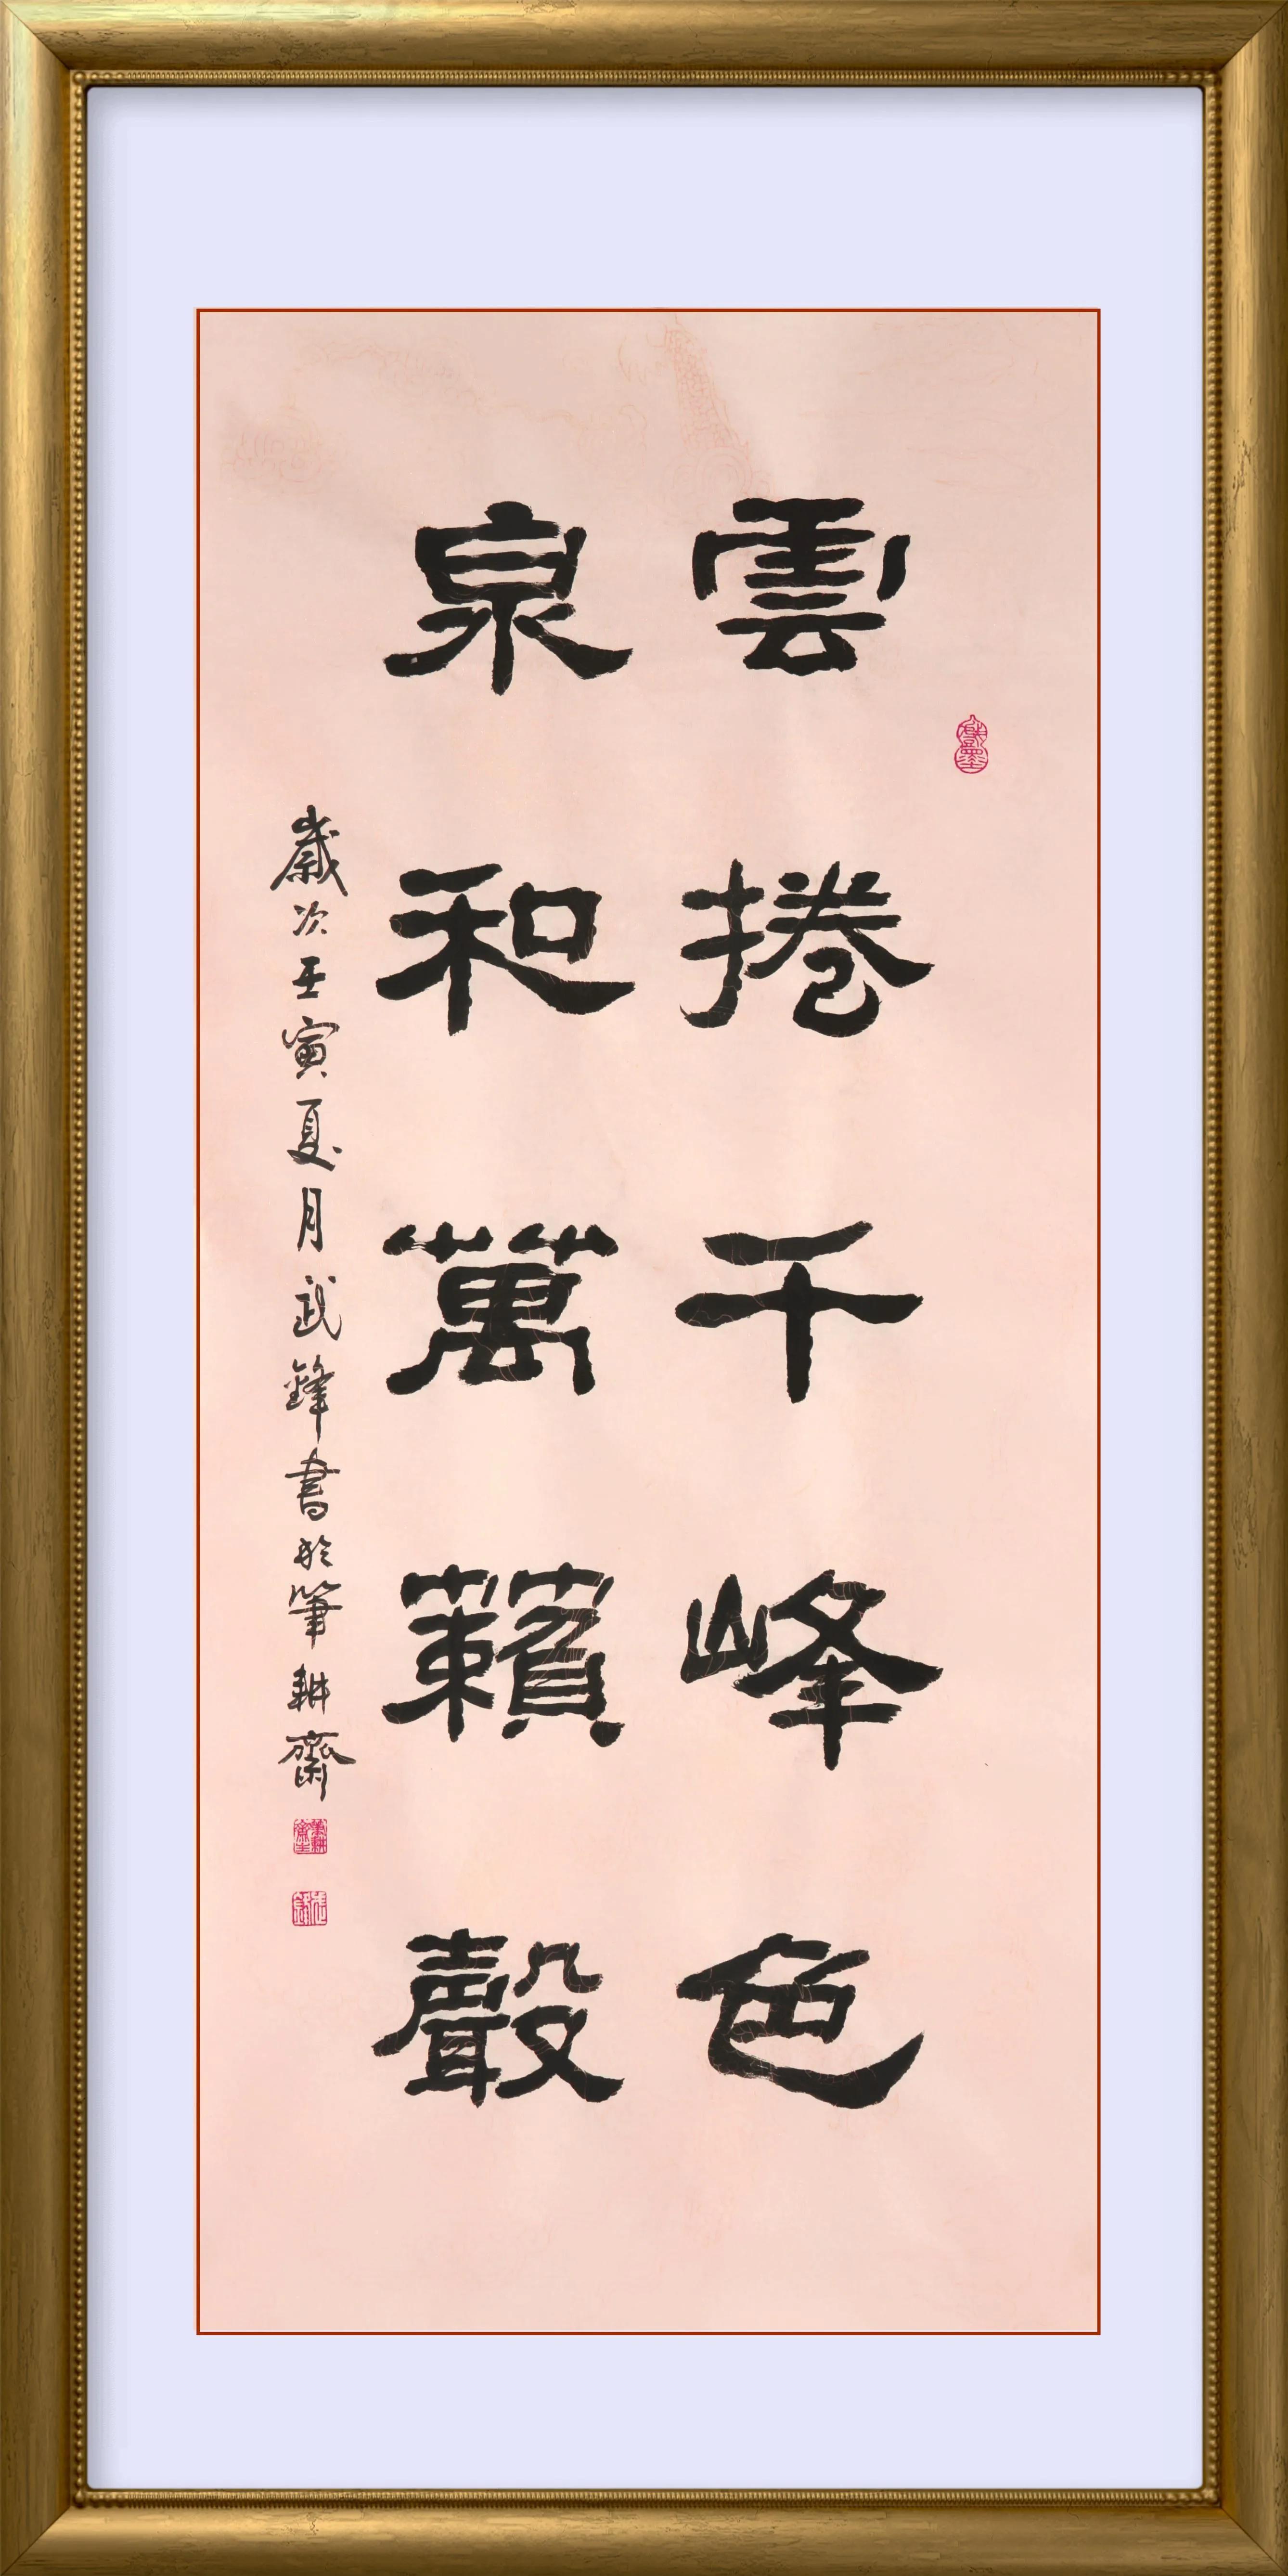 雲捲千峰色
泉和萬籟聲
歲次壬寅夏月武鋒書於筆耕齋